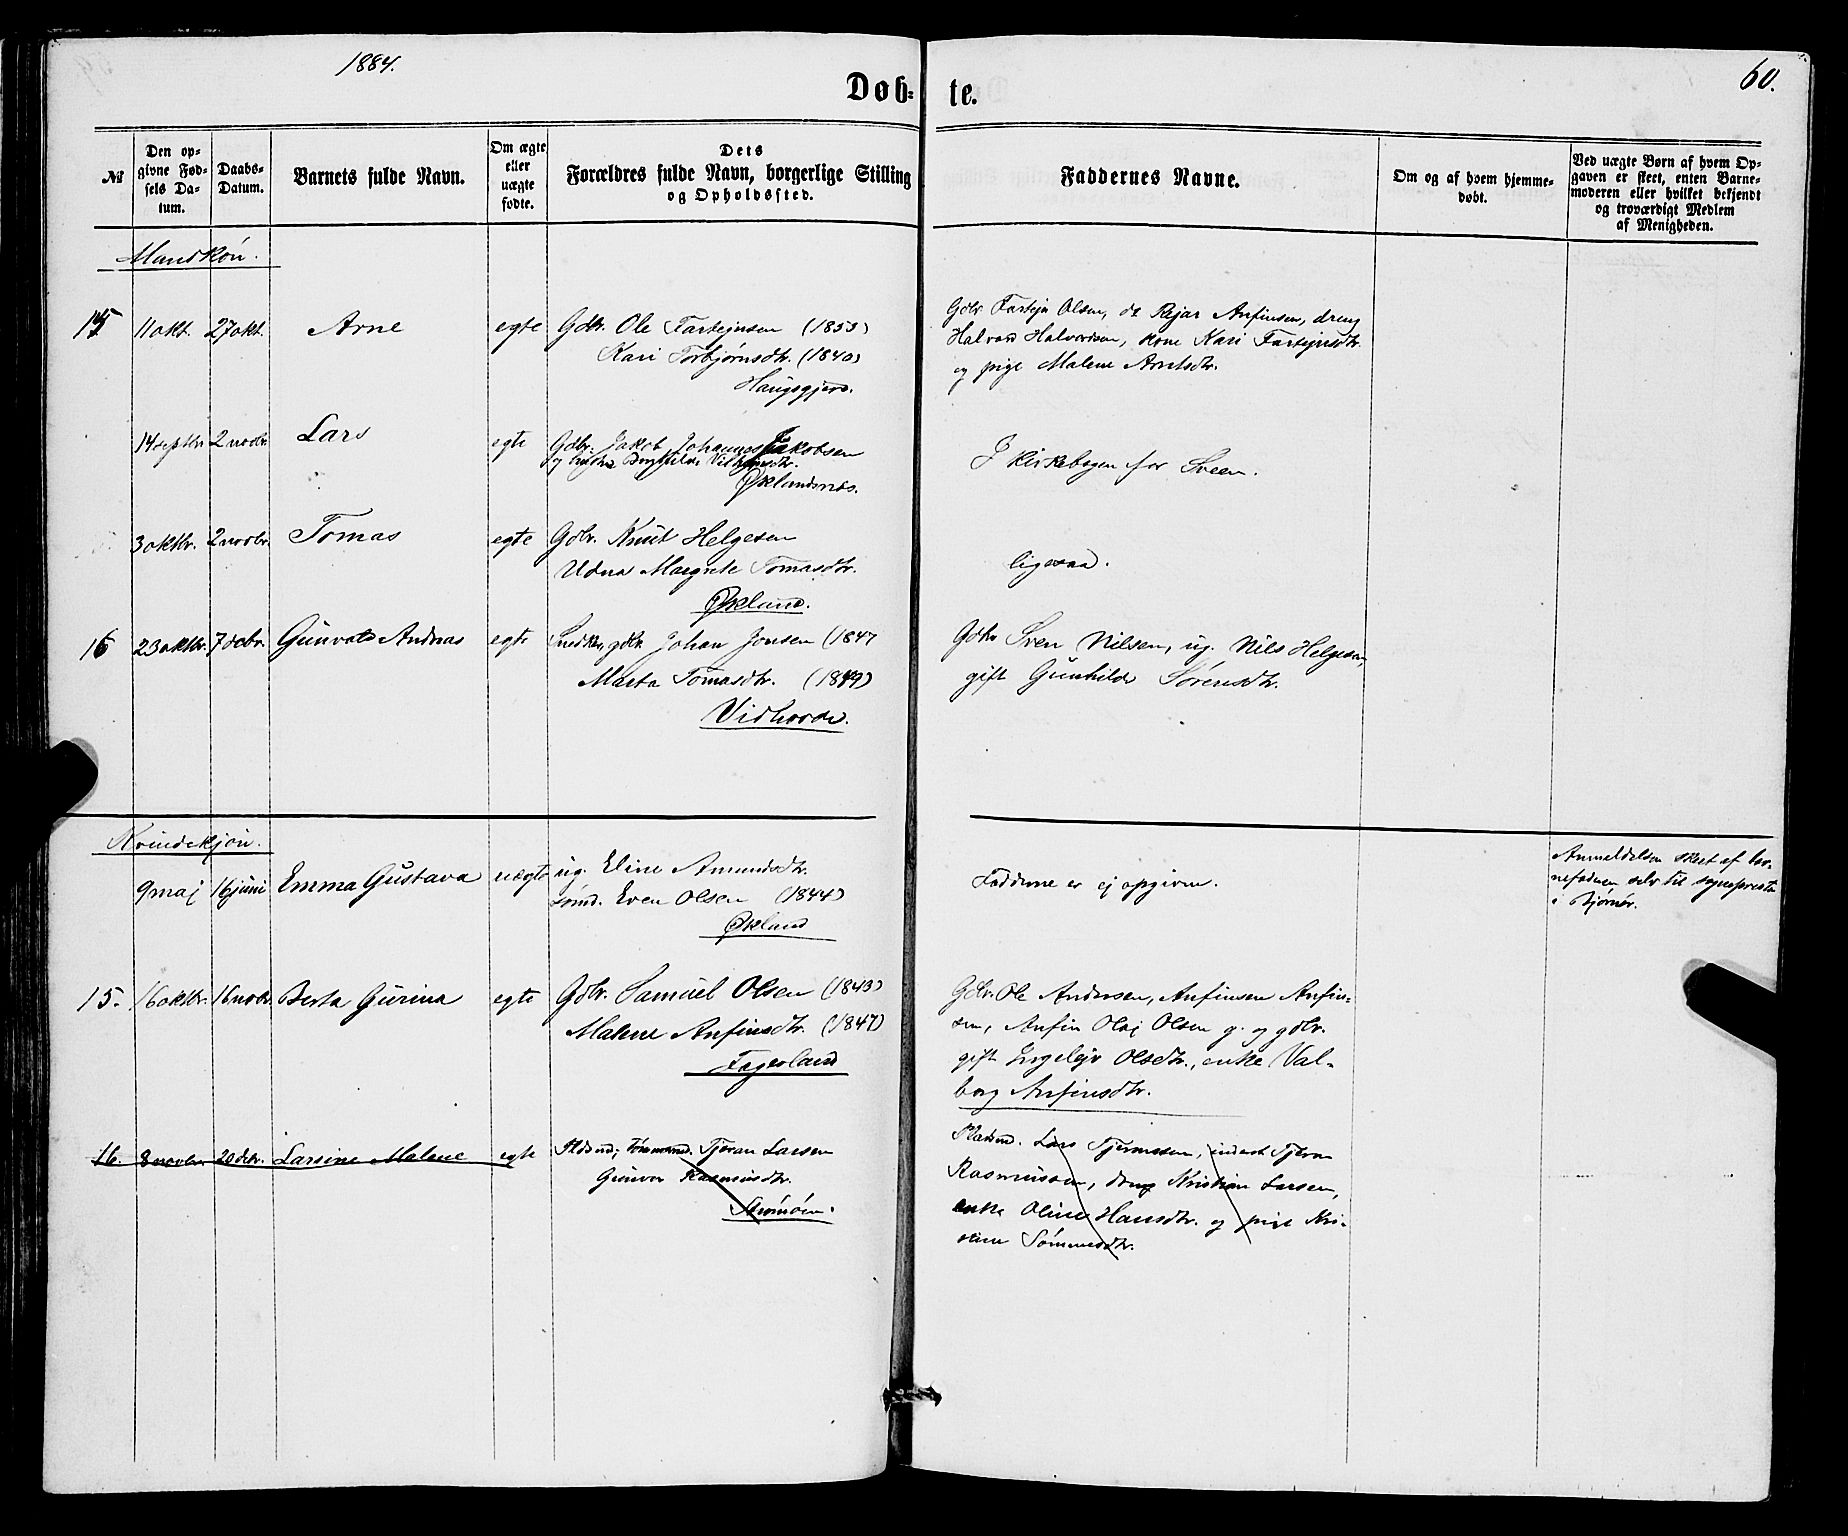 1884.
Døb= te.
60.
№
Den opgivne Fødsels Datum.
Daabs-Datum.
Barnets fulde Navn.
Om ægte eller uægte fødte.
Dets Forældres fulde Navn, borgerlige Stilling og Opholdssted.
Faddernes Navne.
Om og af hvem hjemmedøbt.
Ved uægte Børn af hvem Opgaven er skeet, enten Barnemoderen eller hvilket bekjendt og troværdigt Medlem af Menigheden.
Mandkøn.
15 11 okt. 27 okt. Arne egte Gdbr. Ole Tartejnsen (1853)
Kari Torbjørnsdtr. (1840)
Haugsgjerd.
Gdbr Tartejn Olsen, do Rejar Anfinsen, dreng
Halvard Halvordsen, kone Kari Tartejnsdtr.
og pige Malene Arntsdtr.
14 septbr 2 novbr. Lars egte Gdbr. Jakob Johannes Jakobsen
Økландsnes.
I kirkebogen for Sveen.
3 oktbr. 2 novbr. Tomas egte Gdbr. Knut Helgesen
Udna Margrete Tomasdtr.
Økland.
ligesaa.
16 23 oktbr. 7 decbr. Gunvald Andreas egte Snedker, gdbr. Johan Jonsen (1847
Marta Tomasdtr. (1849)
Vidhovde.
Gdbr Sven Nilsen, ug. Nils Helgesen,
gift Gunhilde Sørensdtr.
Kvindekjøn.
9 maj 16 juni Emma Gustava uægte ug. Eline Amundsdtr.
Even Olsen (1844)
Økland
Fadderne er ej opgivne.
Anmeldelsen skeet af bar-
nefaderen selv til sognepresten
i Bjørnør.
15. 16 oktbr. 16 novbr. Berta Gurina egte Gdbr. Samuel Olsen (1843)
Malene Anfinsdtr. (1847)
Fagerland
Gdbr. Ole Andersen, Anfinsen Anfin-
sen, Anfin Olaj Olsen g. og gdbr.
gift Ingelejv Olsdtr., enke Val-
borg Anfinsdtr.
16. 8 novbr. 20 decbr. Larsine Malene egte Tjeran Larsen
Gunvor Rasmusdtr.
Strømøen.
Pladsmd. Lars Tjeransen, inderst Tjeran
Rasmussen, dreng Kristian Larsen,
enke Oline Hansdtr. og pige Kri-
stine Sømmesdtr.